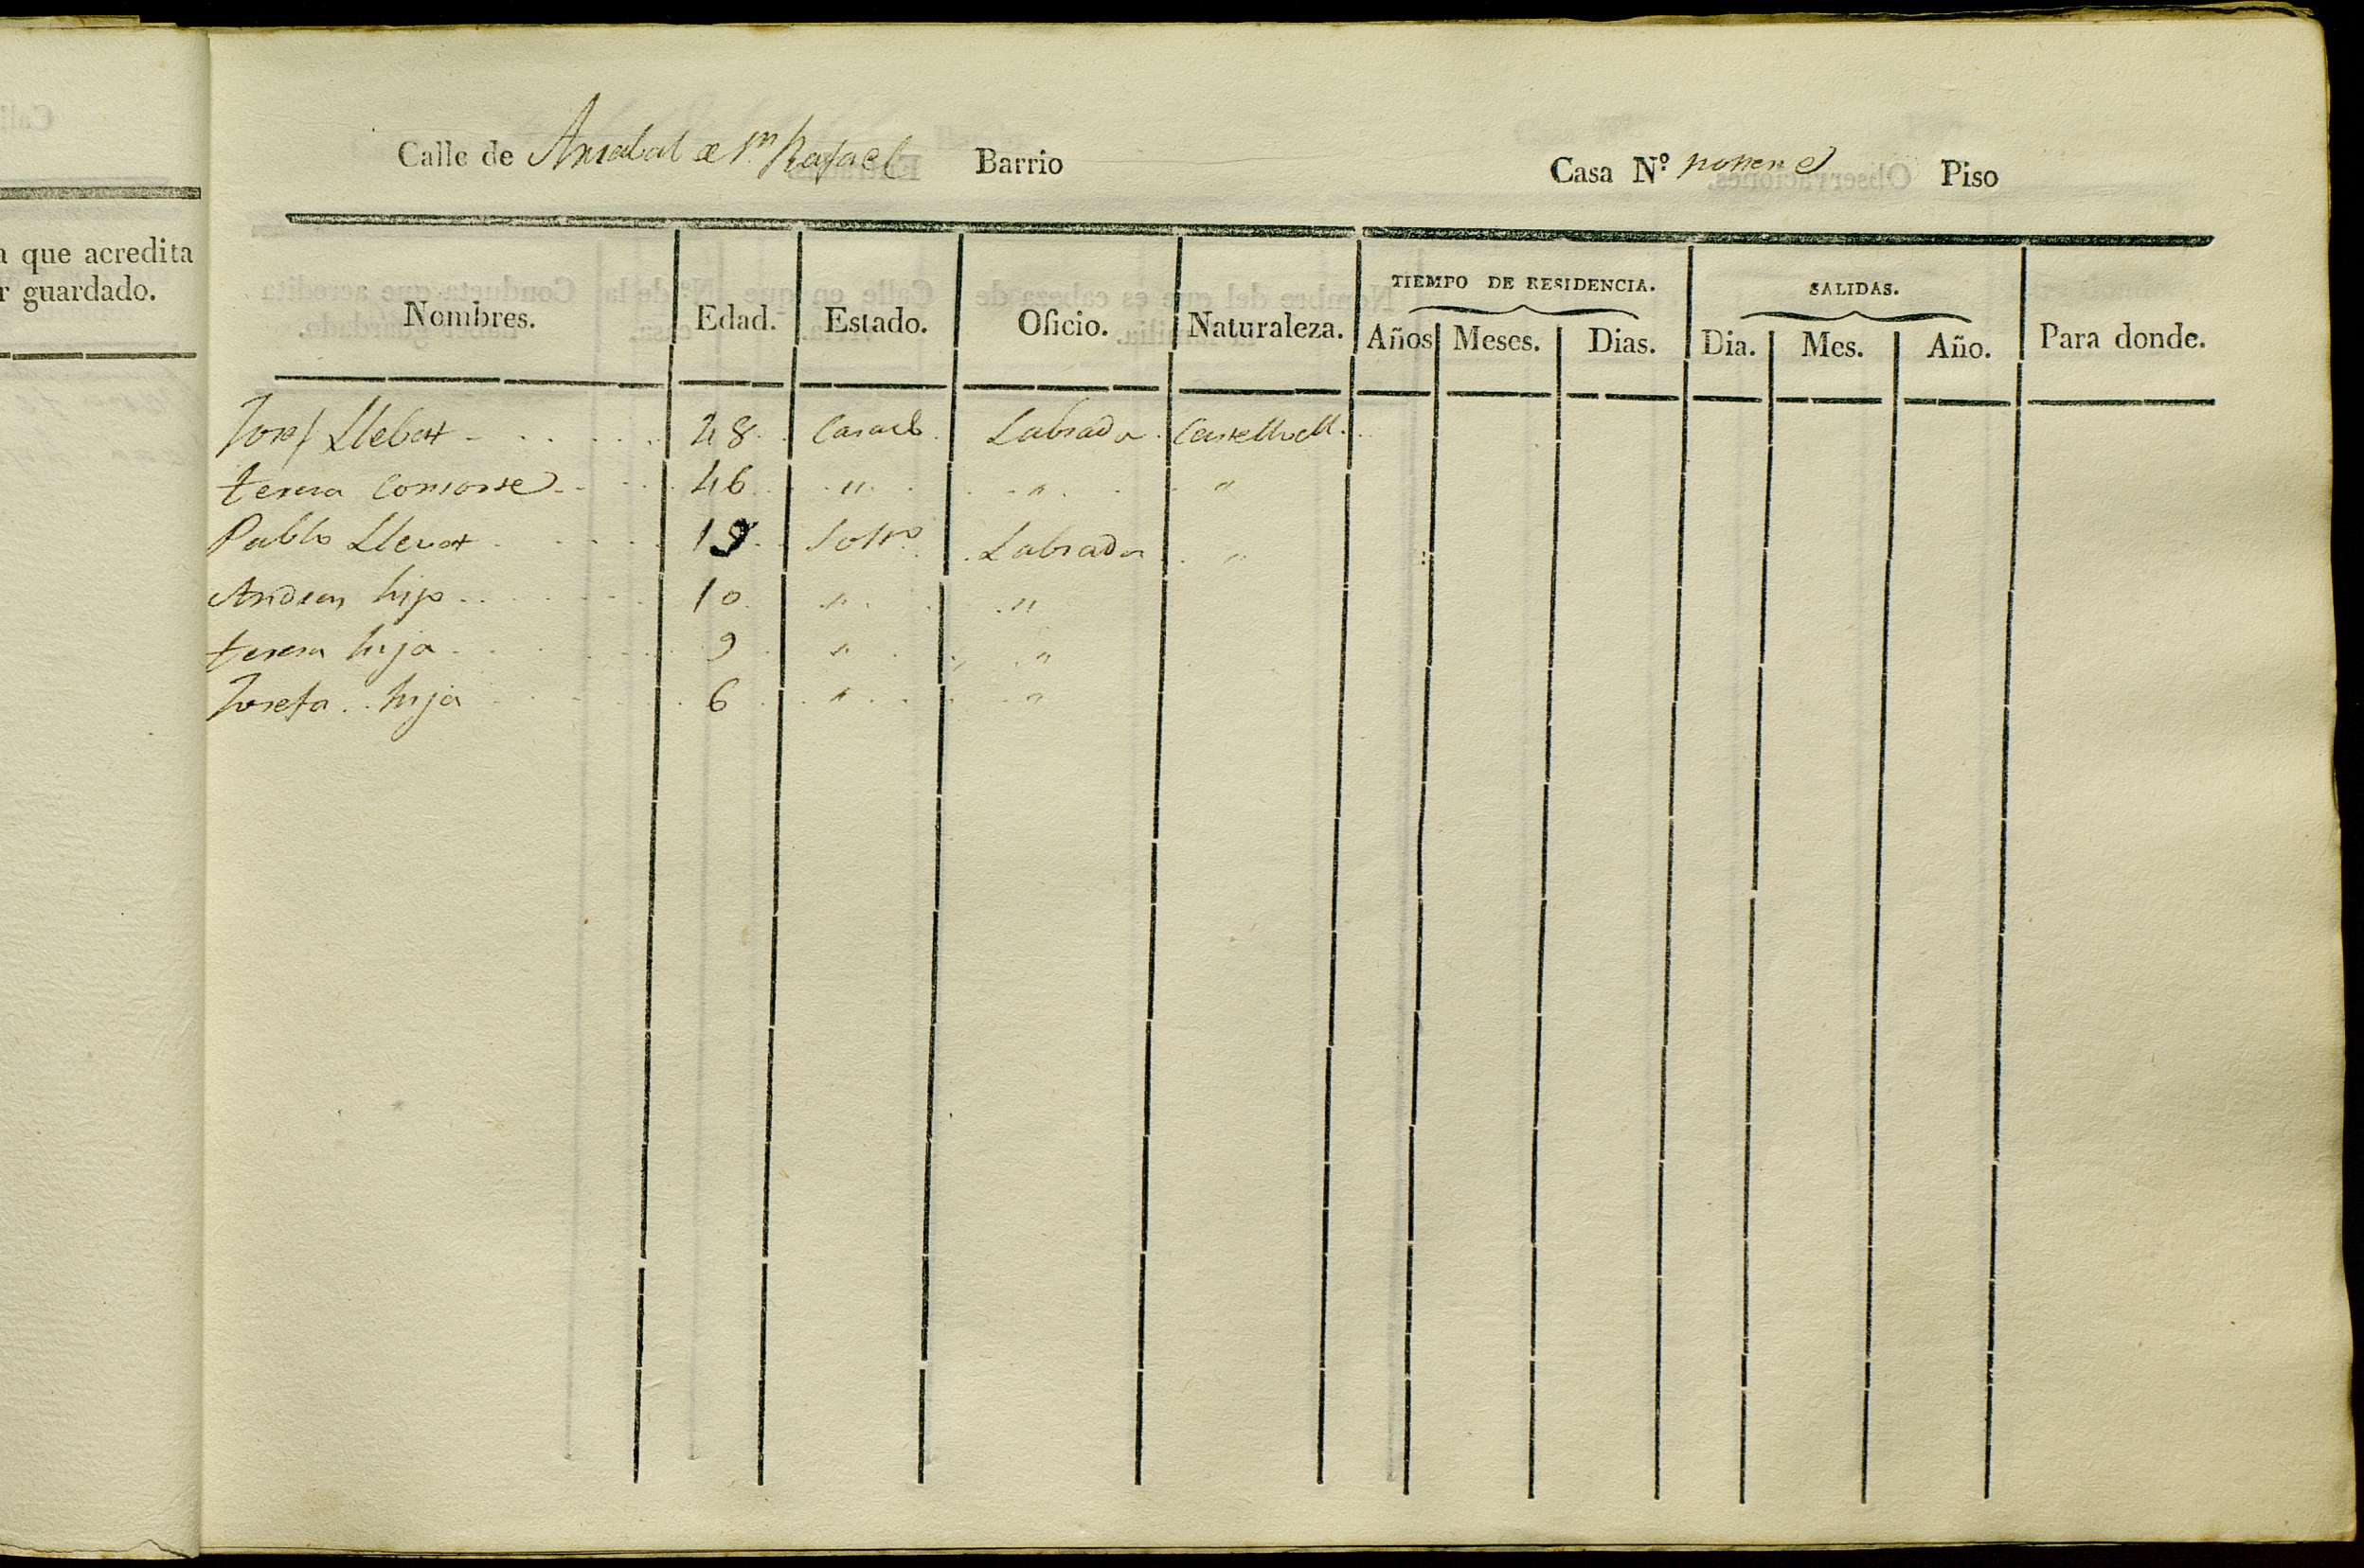 a que acredita
r guardado.
Calle de Arrabal de Sn. Rafael Barrio Casa Nº. no tiene Piso
Nombres. Edad. Estado. Oficio. Naturaleza. TIEMPO DE RESIDENCIA. Años Meses. Dias. SALIDAS. Dia. Mes. Año. Para donde.
Josef Llebat 48 Casado Labrador Castellvell
teresa Consorte 46 " " "
Pablo Llevat 19 Solto. Labrador "
Andreu hijo 10 " "
teresa hija 9 " "
Josefa hija 6 " "